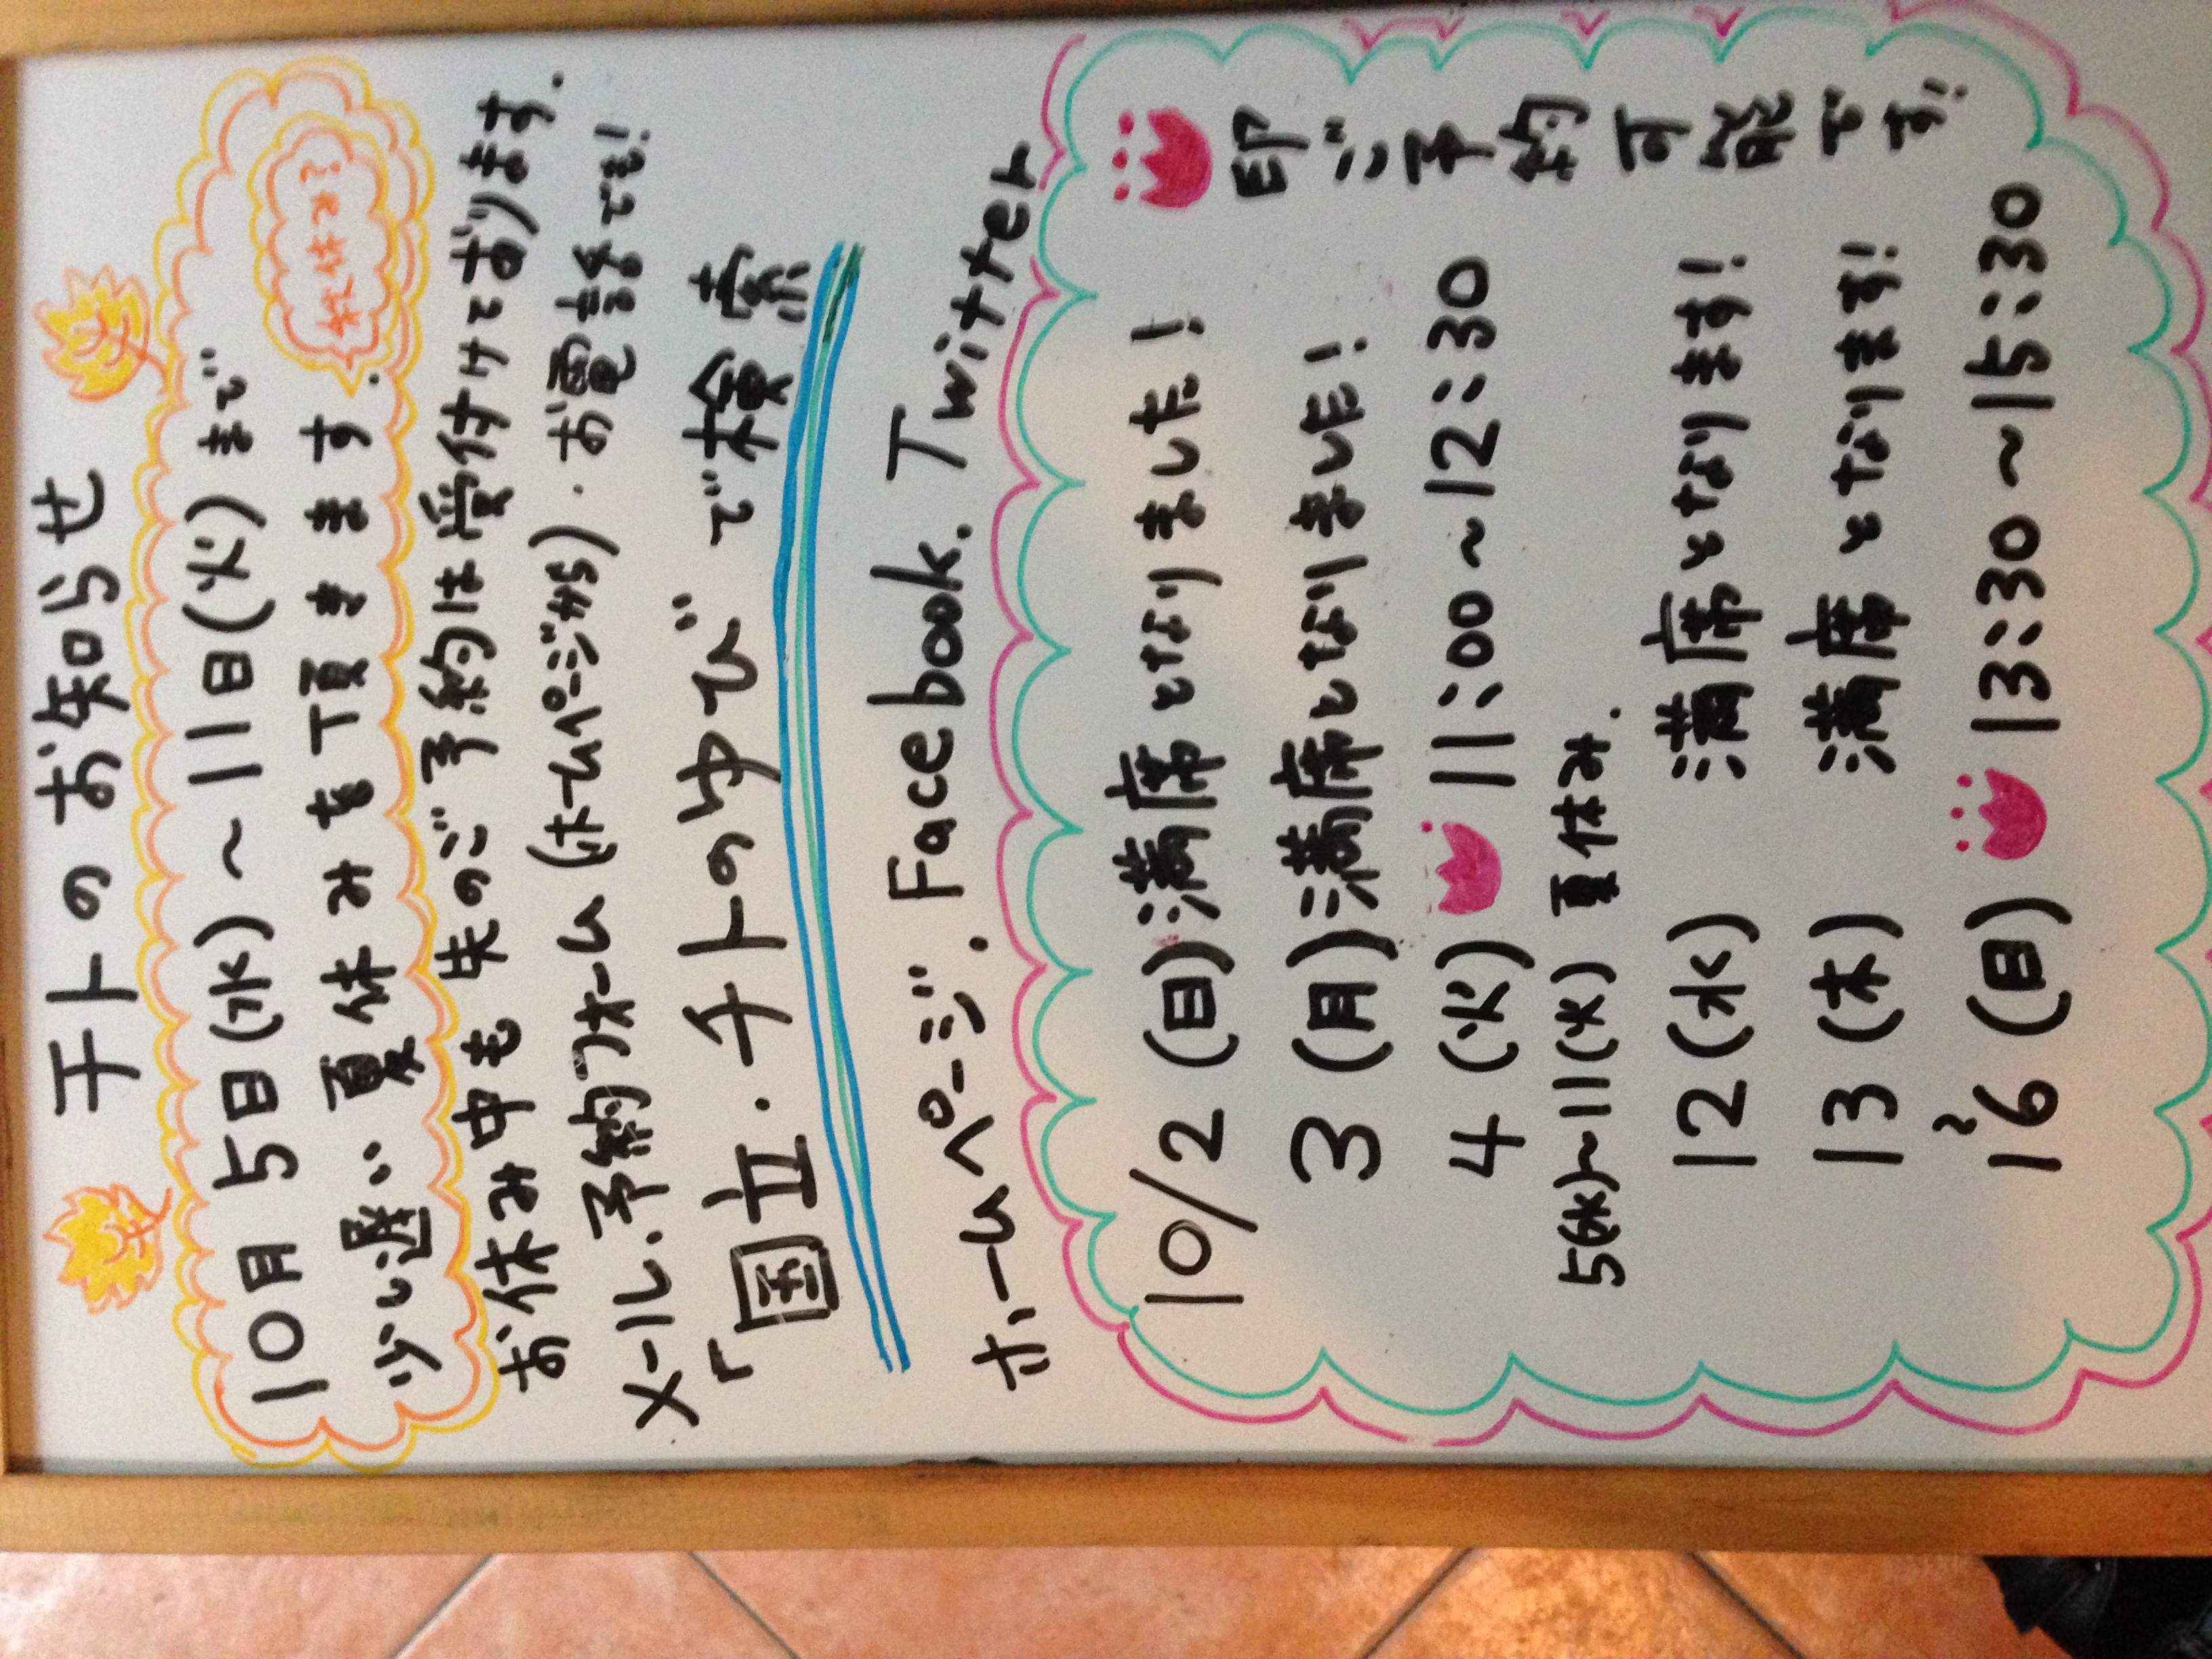 チトのお知らせ
10月5日(水)〜11日(火)まで
少し遅い夏休みを頂きます.
お休み中も先のご予約は受付けております.
メール.予約フォーム(ホームページから).お電話
「国立.チトのゆび"で検索
ホームページ. Facebook. Twitter
印ご予約可能です!
10/2(日)満席となりました!
3(月)満席となりました!
4(火) 11:00〜12:30
5(水)〜11(火)夏休み.
12(水) 満席となります!
13(木) 満席となります!
〜
16(日) 13:30〜15:30